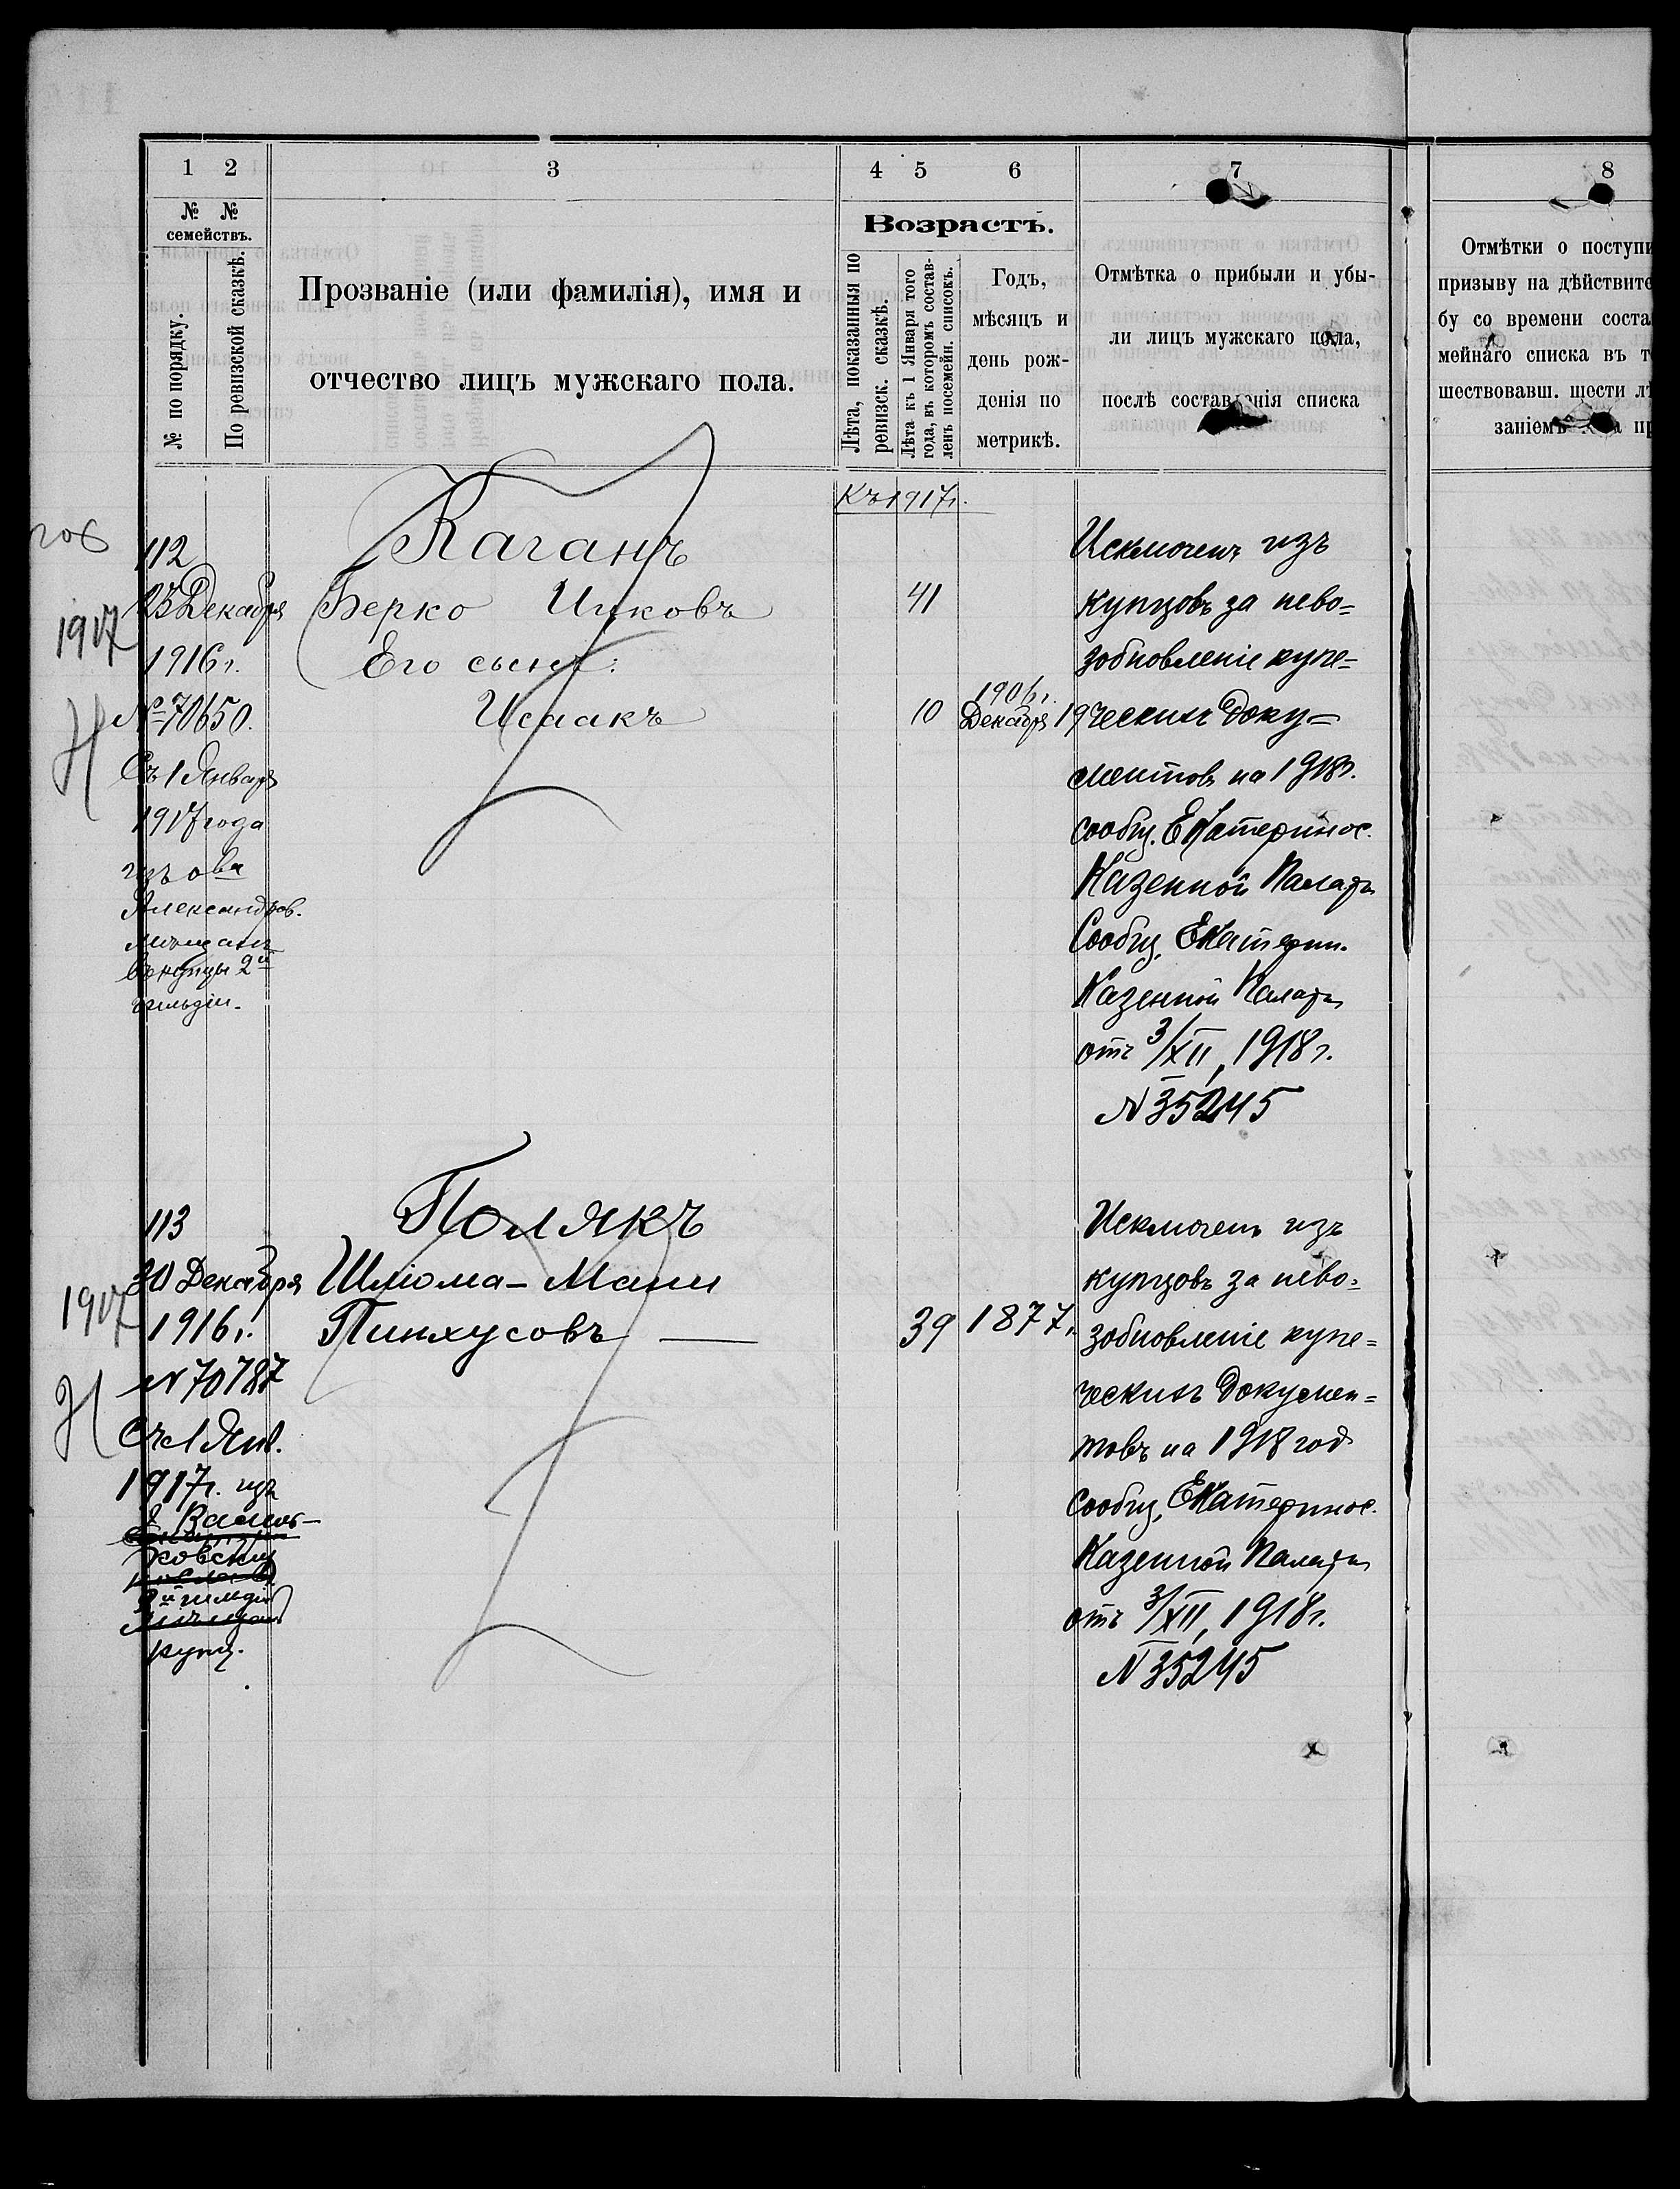 1 2 3 4 5 6 7 8
№ № семействъ.
№ по порядку.
По ревизской сказкѣ.
Прозваніе (или фамилія), имя и
отчество лицъ мужскаго пола.
Возрастъ.
Лѣта, показанныя по
ревизск. сказкѣ.
Лѣта къ 1 Января того
года, въ которомъ состав-
ленъ посемейн. списокъ.
Годъ,
мѣсяцъ и
день рож-
денія по
метрикѣ.
Отмѣтка о прибыли и убы-
ли лицъ мужскаго пола,
послѣ составленія списка
Отмѣтки о поступи
призыву на дѣйствите
бу со времени соста
мейнаго списка въ т
шествовавш. шести лѣ
заніемъ
Къ 1917г.
112
23 Декабря
1917
1916г.
№ 70650.
Съ 1 Января
1917 года
изъ ова
Александров.
мѣщанъ
въ купцы 2й
гильдіи.
Каганъ
Берко Ицковъ 41
Его сынъ:
Исаакъ 10
1906г.
Декабря 19
Исключенъ изъ
купцовъ за нево=
зобновленіе купе=
ческихъ доку=
ментовъ на 1918г.
сообщ. Екатеринос.
Казенной Палаты
Сообщ. Екатерин.
Казенной Палаты
отъ 3/XII, 1918г.
N 35245
113
30 Декабря
1917
1916г.
N 70787
Съ 1 Янв.
1917г. изъ
ковскихъ
2й гильдіи
купц.
Полякъ
Шлiома-Мани
Пинхусовъ — 39 1877г.
Исключенъ изъ
купцовъ за нево=
зобновленіе купе=
ческихъ докумен=
товъ на 1918 год
сообщ. Екатеринос.
Казенной Палаты
отъ 3/XII, 1918г.
N 35245